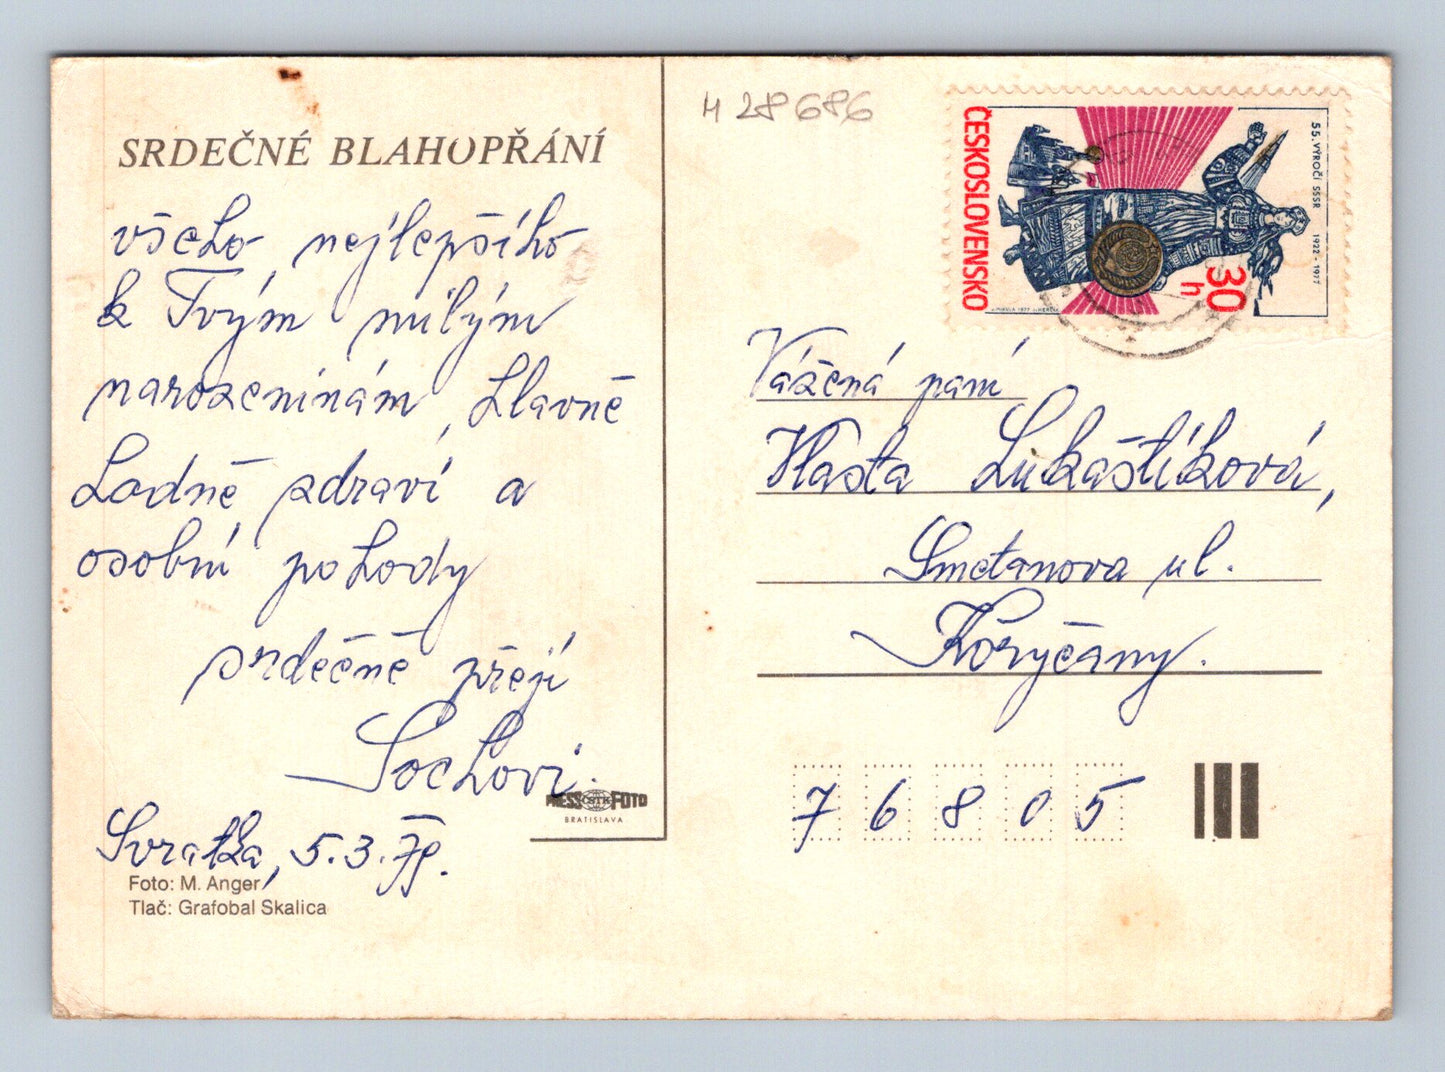 SRDEČNÉ BLAHOPŘÁNÍ
všeho nejlepšího
k Tvým milým
narozeninám, hlavně
hodně zdraví a
osobní pohody
srdečně přejí
Sochovi.
Svratka, 5.3.79.
Foto: M. Anger
Tlač: Grafobal Skalica
PRESS ČSTK FOTO
BRATISLAVA
H 28686
ČESKOSLOVENSKO
55. VÝROČÍ SSSR 1922-1977
30 h
Vážená paní
Vlasta Lukaštíková,
Smetanova ul.
Koryčany.
7 6 8 0 5